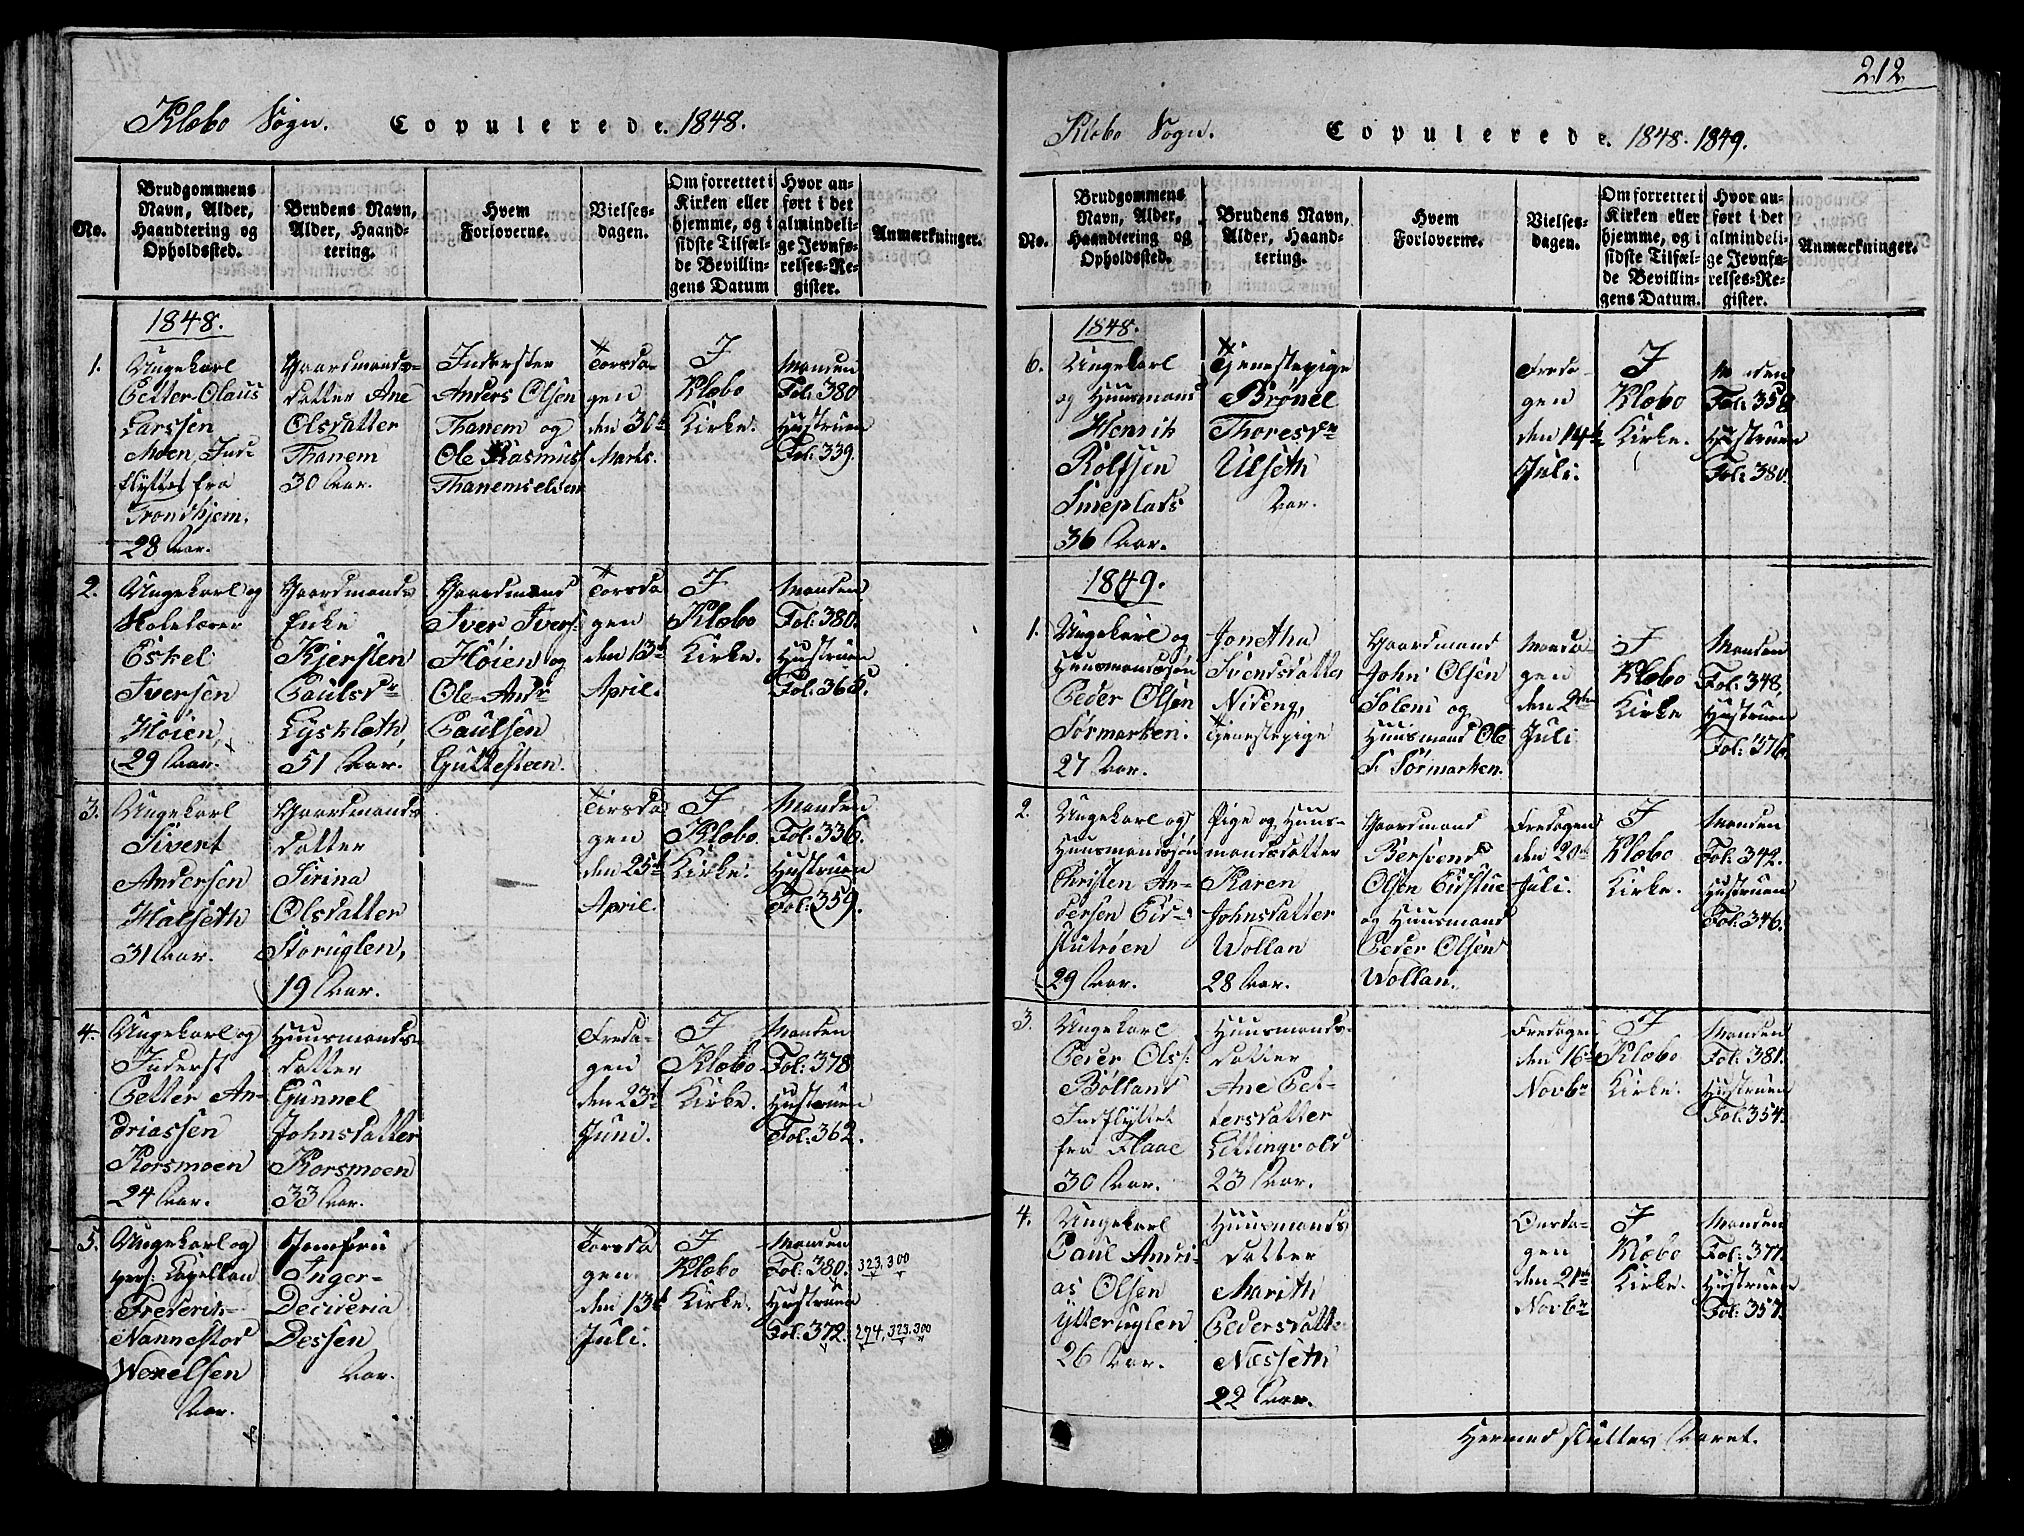 Klæbo Sogn. Copulerede. 1848.
No.
Brudgommens
Navn, Alder,
Haandtering og
Opholdssted.
Brudens Navn,
Alder, Haand-
tering.
Hvem
Forloverne.
Vielses-
dagen.
Om forrettet i
Kirken eller
hjemme, og i
sidste Tilfæl-
de Bevillin-
gens Datum
Hvor an-
ført i det
almindeli-
ge Jevnfø-
relses-Re-
gister.
Anmærkninger.
1848.
1.
Ungekarl
Petter Olaus
Larssen
Moen, Ind-
flyttet fra
Trondhjem.
28 Aar.
Gaardmands-
datter Ane
Olsdatter
Thanem
30 Aar.
Inderster
Anders Olsen
Thanem og
Ole Rasmus
Thanemselven
Torsda-
gen
den 30te
Marts.
I
Klæbo
Kirke.
Manden
Fol: 380
Hustruen
Fol: 339.
2.
Ungekarl og
Skolelærer
Eskel
Iversen
Høien,
29 Aar.
Gaardmands
Enke
Kjersten
Paulsdr
Lysklæth,
51 Aar.
Gaardmænd
Iver Ivers:
Høien og
Ole Andr
Paulsen
Guttesteen.
Torsda
gen
den 13de
April.
I
Klæbo
Kirke.
Manden
Fol: 380.
Hustruen
Fol: 365.
3.
Ungekarl
Sivert
Andersen
Halseth
31 Aar.
Gaardmands
datter
Sirina
Olsdatter
Storuglen,
19 Aar.
Tirsda
gen
den 25de
April.
I
Klæbo.
Kirke.
Manden
Fol: 336.
Hustruen
Fol: 359.
4.
Ungekarl og
Inderst
Petter An-
driassen
Korsmoen
24 Aar.
Huusmands-
datter
Gunnel
Johnsdatter
Korsmoen
33 Aar.
Freda-
gen
den 23de
Juni.
I
Klæbo
Kirke.
Manden
Fol: 378
Hustruen
Fol: 362.
5.
Ungekarl og
pers: Capellan
Frederik
Nannestad
Wexelsen
Aar.
Jomfru
Inger
Decideria
Dessen
Aar.
Torsda
gen
den 13de
Juli.
I
Klæbo
Kirke.
Manden
Fol: 380.
Hustruen
Fol: 372.
323, 300
274, 323, 300
212
Klæbo Sogn. Copulerede. 1848. 1849.
No.
Brudgommens
Navn, Alder,
Haandtering og
Opholdssted.
Brudens Navn,
Alder, Haand-
tering.
Hvem
Forloverne.
Vielses-
dagen.
Om forrettet i
Kirken eller
hjemme, og i
sidste Tilfæl-
de Bevillin-
gens Datum.
Hvor an-
ført i det
almindeli-
ge Jevnfø-
relses-Re-
gister.
Anmærkninger.
1848.
6.
Ungekarl
og Huusmand
Henrik
Rolfsen
Sneplads
36 Aar.
Tjenestepige
Brønel
Thoresdr
Ulseth
Aar.
Freda-
gen
den 14de
Juli.
I
Klæbo
Kirke.
Manden
Fol: 358
Hustruen
Fol: 380.
1849.
1.
Ungekarl og
Huusmandssøn
Peder Olsen
Sørmarken.
27 Aar.
Jonetha
Svendsdatter
Nideng,
Tjenestepige
Gaardmand
John Olsen
Solem og
Huusmand Ole
F Sørmarken.
Manda-
gen
den 9de
Juli
I
Klæbo
Kirke
Manden
Fol: 348,
Hustruen
Fol: 376.
2.
Ungekarl og
Huusmandssøn
Christen An-
dersen Eid-
stutrøen
29 Aar.
Pige og Huus-
mandsdatter
Karen
Johnsdatter
Wollan
28 Aar.
Gaardmand
Bersvend
Olsen Eidstue
og Huusmand
Peder Olsen
Wollan.
Fredagen
den 20de
Juli.
I
Klæbo
Kirke.
Manden
Fol: 342.
Hustruen
Fol: 346.
3.
Ungekarl
Peder Ols:
Bølland
Indflyttet
fra Flaae
30 Aar.
Huusmands-
datter
Ane Pet-
tersdatter
Lettingvold
23 Aar.
Fredagen
den 16de
Novbr
I
Klæbo
Kirke.
Manden
Fol: 381.
Hustruen
Fol: 354.
4.
Ungekarl
Paul Andri-
as Olsen
Ytteruglen
26 Aar.
Huusmands
datter
Marith
Pedersdatter
Næsseth
22 Aar.
Onsda-
gen
den 21de
Novbr
I
Klæbo
Kirke.
Manden
Fol: 377.
Hustruen
Fol: 357.
Hermed sluttes Aaret.